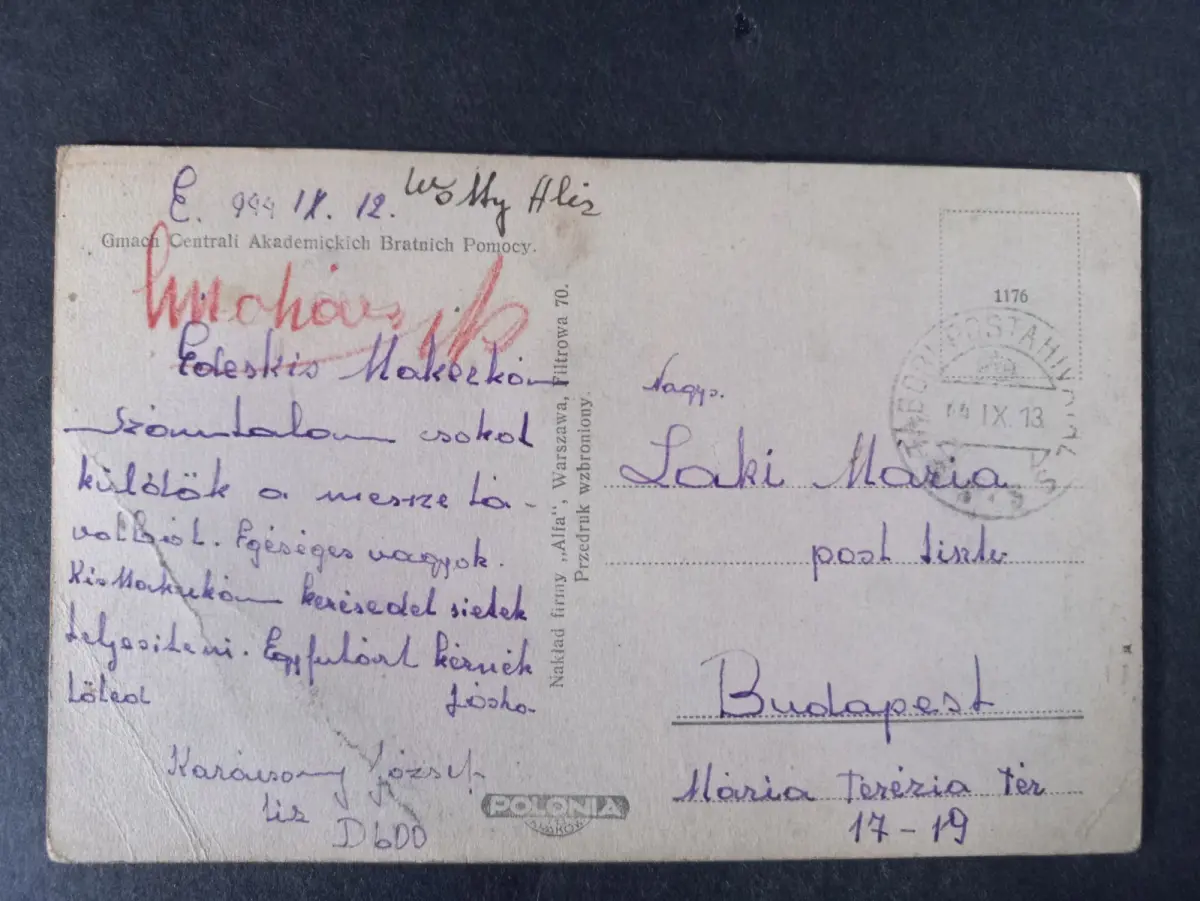 E. 944 IX. 12.
Gmach Centrali Akademickich Bratnich Pomocy.
Edeskis Makczkóm
Számtalam csokol
küldök a mesze tá-
volból. Egéséges vagyok.
Kis kerésedet sietek
teljesiteni. Egy futárt kérnék
tőled Jóska
Karácsony József
tiz
D600
Nakład firmy „Alfa", Warszawa, Filtrowa 70.
Przedruk wzbroniony.
POLONIA
KRAKÓW
1176
TÁBORI POSTAHIVATAL
44 IX. 13
Nagys.
Laki Mária
post tiszt
Budapest
Mária Terézia tér
17-19